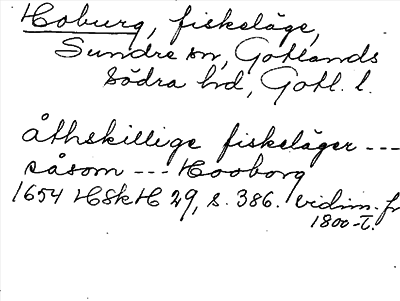 Hoburg, fiskeläge,
Sundre sn, Gotlands
södra hd, Gotl. l.
åthskillige fiskeläger ---
såsom --- Hooborg
1654 HSkH 29, s. 386. vidim. fr
1800-t.